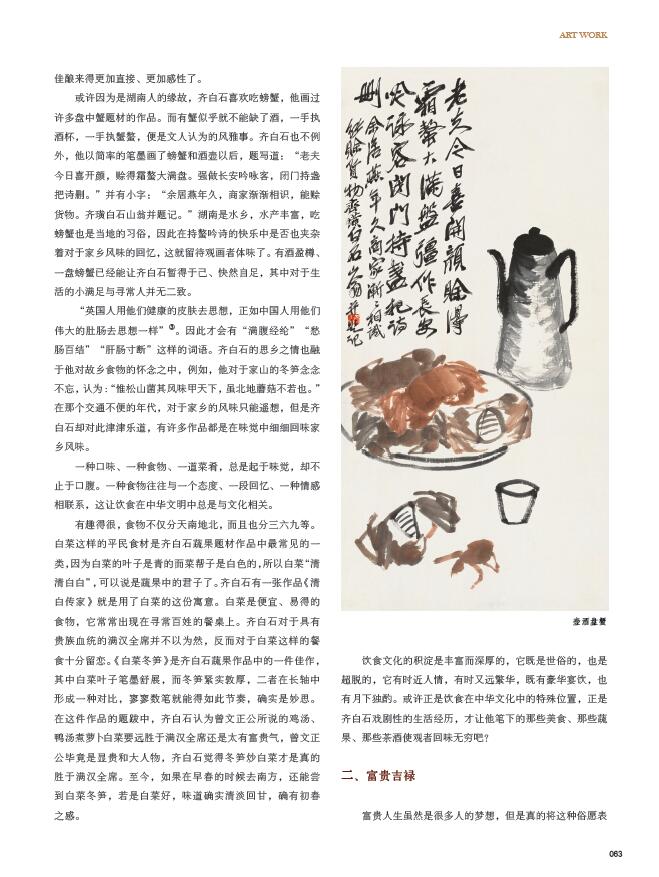 ART WORK
佳酿来得更加直接、更加感性了。
或许因为是湖南人的缘故，齐白石喜欢吃螃蟹，他画过
许多盘中蟹题材的作品。而有蟹似乎就不能缺了酒，一手执
酒杯，一手执蟹螯，便是文人认为的风雅事。齐白石也不例
外，他以简率的笔墨画了螃蟹和酒壶以后，题写道：“老夫
今日喜开颜，赊得霜螯大满盘。强做长安吟咏客，闭门持盏
把诗删。”并有小字：“余居燕年久，商家渐渐相识，能赊
货物。齐璜白石山翁并题记。”湖南是水乡，水产丰富，吃
螃蟹也是当地的习俗，因此在持螯吟诗的快乐中是否也夹杂
着对于家乡风味的回忆，这就留待观画者体味了。有酒盈樽、
一盘螃蟹已经能让齐白石暂得于己、快然自足，其中对于生
活的小满足与寻常人并无二致。
“英国人用他们健康的皮肤去思想，正如中国人用他们
伟大的肚肠去思想一样”。因此才会有“满腹经纶”“愁
肠百结”“肝肠寸断”这样的词语。齐白石的思乡之情也融
于他对故乡食物的怀念之中，例如，他对于家山的冬笋念念
不忘，认为：“惟松山菌其风味甲天下，虽北地蘑菇不若也。”
在那个交通不便的年代，对于家乡的风味只能遥想，但是齐
白石却对此津津乐道，有许多作品都是在味觉中细细回味家
乡风味。
一种口味、一种食物、一道菜肴，总是起于味觉，却不
止于口腹。一种食物往往与一个态度、一段回忆、一种情感
相联系，这让饮食在中华文明中总是与文化相关。
有趣得很，食物不仅分天南地北，而且也分三六九等。
白菜这样的平民食材是齐白石蔬果题材作品中最常见的一
类，因为白菜的叶子是青的而菜帮子是白色的，所以白菜“清
清白白”，可以说是蔬果中的君子了。齐白石有一张作品《清
白传家》就是用了白菜的这份寓意。白菜是便宜、易得的
食物，它常常出现在寻常百姓的餐桌上。齐白石对于具有
贵族血统的满汉全席并不以为然，反而对于白菜这样的餐
食十分留恋。《白菜冬笋》是齐白石蔬果作品中的一件佳作，
其中白菜叶子笔墨舒展，而冬笋紧实敦厚，二者在长轴中
形成一种对比，寥寥数笔就能得如此节奏，确实是妙思。
在这件作品的题跋中，齐白石认为曾文正公所说的鸡汤、
鸭汤煮萝卜白菜要远胜于满汉全席还是太有富贵气，曾文正
公毕竟是显贵和大人物，齐白石觉得冬笋炒白菜才是真的
胜于满汉全席。至今，如果在早春的时候去南方，还能尝
到白菜冬笋，若是白菜好，味道确实清淡回甘，确有初春
之感。
老夫今日喜開顏賒得
霜螯大滿盤彊作長安
吟詠客閉門持盞把詩
刪
余居燕年久商家漸漸相識
能賒貨物齊璜白石山翁并題記
壶酒盘蟹
饮食文化的积淀是丰富而深厚的，它既是世俗的，也是
超脱的，它有时近人情，有时又远繁华，既有豪华宴饮，也
有月下独酌。或许正是饮食在中华文化中的特殊位置，正是
齐白石戏剧性的生活经历，才让他笔下的那些美食、那些蔬
果、那些茶酒使观者回味无穷吧？
二、富贵吉禄
富贵人生虽然是很多人的梦想，但是真的将这种俗愿表
063